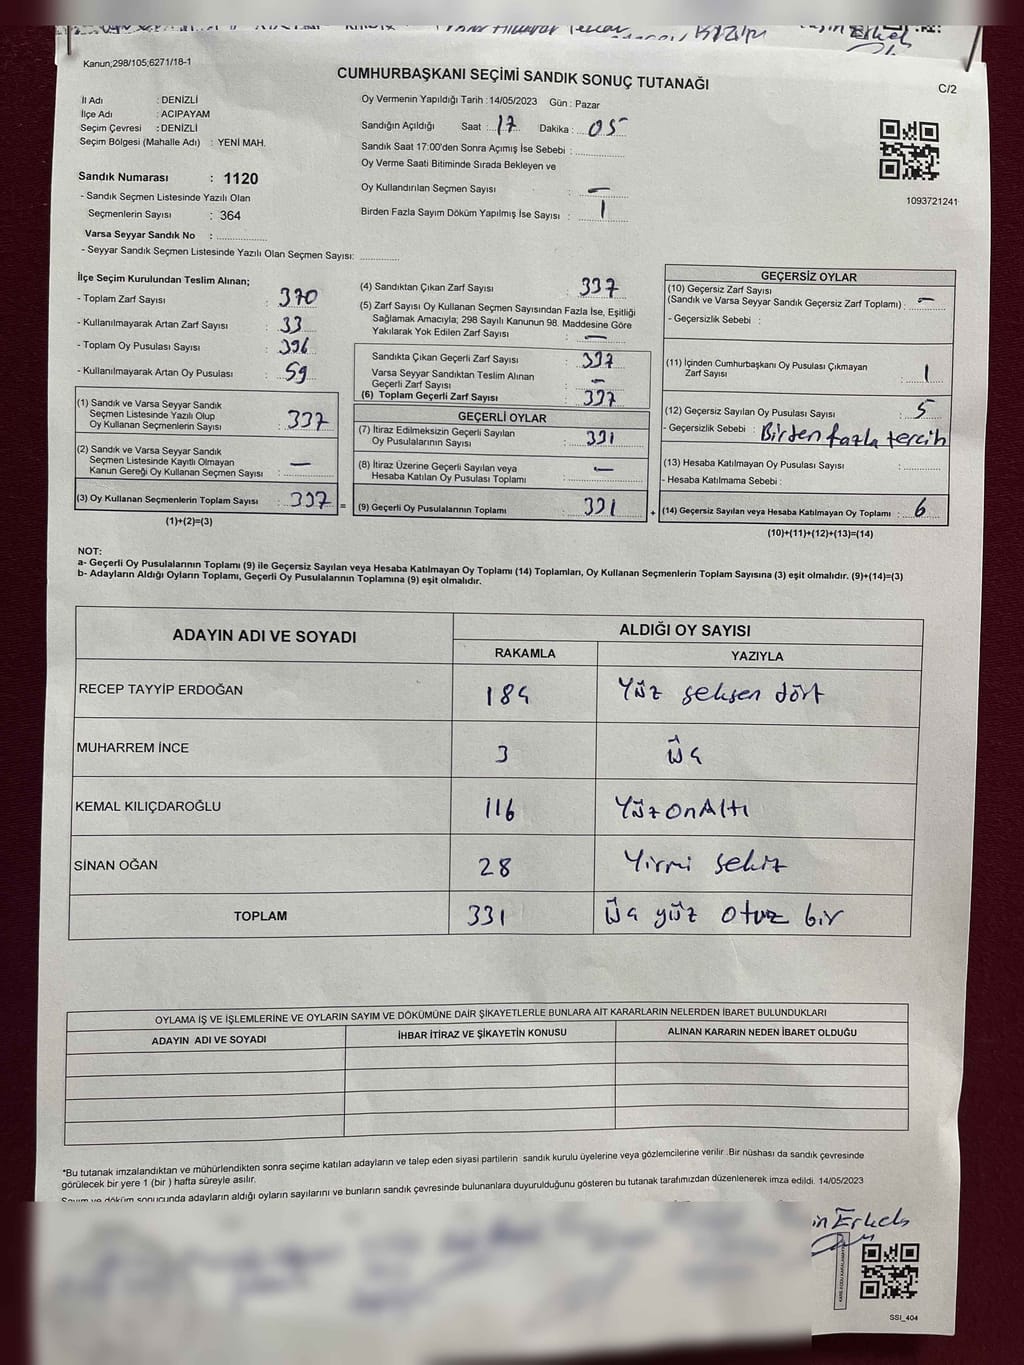 Kanun;298/105;6271/18-1
CUMHURBAŞKANI SEÇİMİ SANDIK SONUÇ TUTANAĞI
C/2
İl Adı : DENİZLİ
İlçe Adı : ACIPAYAM
Seçim Çevresi : DENİZLİ
Seçim Bölgesi (Mahalle Adı) : YENİ MAH.
Sandık Numarası : 1120
- Sandık Seçmen Listesinde Yazılı Olan
Seçmenlerin Sayısı : 364
Varsa Seyyar Sandık No :
- Seyyar Sandık Seçmen Listesinde Yazılı Olan Seçmen Sayısı:
Oy Vermenin Yapıldığı Tarih : 14/05/2023 Gün : Pazar
Sandığın Açıldığı Saat : 17 Dakika : 05
Sandık Saat 17:00'den Sonra Açımış İse Sebebi :
Oy Verme Saati Bitiminde Sırada Bekleyen ve
Oy Kullandırılan Seçmen Sayısı : –
Birden Fazla Sayım Döküm Yapılmış İse Sayısı : 1
1093721241
İlçe Seçim Kurulundan Teslim Alınan;
- Toplam Zarf Sayısı : 370
- Kullanılmayarak Artan Zarf Sayısı : 33
- Toplam Oy Pusulası Sayısı : 396
- Kullanılmayarak Artan Oy Pusulası : 59
(1) Sandık ve Varsa Seyyar Sandık
Seçmen Listesinde Yazılı Olup
Oy Kullanan Seçmenlerin Sayısı : 337
(2) Sandık ve Varsa Seyyar Sandık
Seçmen Listesinde Kayıtlı Olmayan
Kanun Gereği Oy Kullanan Seçmen Sayısı : –
(3) Oy Kullanan Seçmenlerin Toplam Sayısı : 337 =
(1)+(2)=(3)
(4) Sandıktan Çıkan Zarf Sayısı : 337
(5) Zarf Sayısı Oy Kullanan Seçmen Sayısından Fazla İse, Eşitliği
Sağlamak Amacıyla; 298 Sayılı Kanunun 98. Maddesine Göre
Yakılarak Yok Edilen Zarf Sayısı : –
Sandıkta Çıkan Geçerli Zarf Sayısı : 337
Varsa Seyyar Sandıktan Teslim Alınan
Geçerli Zarf Sayısı : –
(6) Toplam Geçerli Zarf Sayısı : 337
GEÇERLİ OYLAR
(7) İtiraz Edilmeksizin Geçerli Sayılan
Oy Pusulalarının Sayısı : 331
(8) İtiraz Üzerine Geçerli Sayılan veya
Hesaba Katılan Oy Pusulası Toplamı : –
(9) Geçerli Oy Pusulalarının Toplamı : 331 +
GEÇERSİZ OYLAR
(10) Geçersiz Zarf Sayısı
(Sandık ve Varsa Seyyar Sandık Geçersiz Zarf Toplamı) : –
- Geçersizlik Sebebi :
(11) İçinden Cumhurbaşkanı Oy Pusulası Çıkmayan
Zarf Sayısı : 1
(12) Geçersiz Sayılan Oy Pusulası Sayısı : 5
- Geçersizlik Sebebi : Birden fazla tercih
(13) Hesaba Katılmayan Oy Pusulası Sayısı :
- Hesaba Katılmama Sebebi :
(14) Geçersiz Sayılan veya Hesaba Katılmayan Oy Toplamı : 6
(10)+(11)+(12)+(13)=(14)
NOT:
a- Geçerli Oy Pusulalarının Toplamı (9) ile Geçersiz Sayılan veya Hesaba Katılmayan Oy Toplamı (14) Toplamları, Oy Kullanan Seçmenlerin Toplam Sayısına (3) eşit olmalıdır. (9)+(14)=(3)
b- Adayların Aldığı Oyların Toplamı, Geçerli Oy Pusulalarının Toplamına (9) eşit olmalıdır.
ADAYIN ADI VE SOYADI ALDIĞI OY SAYISI
RAKAMLA YAZIYLA
RECEP TAYYİP ERDOĞAN 184 Yüz seksen dört
MUHARREM İNCE 3 üç
KEMAL KILIÇDAROĞLU 116 Yüz on Altı
SİNAN OĞAN 28 Yirmi sekiz
TOPLAM 331 üç yüz otuz bir
OYLAMA İŞ VE İŞLEMLERİNE VE OYLARIN SAYIM VE DÖKÜMÜNE DAİR ŞİKAYETLERLE BUNLARA AİT KARARLARIN NELERDEN İBARET BULUNDUKLARI
ADAYIN ADI VE SOYADI İHBAR İTİRAZ VE ŞİKAYETİN KONUSU ALINAN KARARIN NEDEN İBARET OLDUĞU
*Bu tutanak imzalandıktan ve mühürlendikten sonra seçime katılan adayların ve talep eden siyasi partilerin sandık kurulu üyelerine veya gözlemcilerine verilir .Bir nüshası da sandık çevresinde
görülecek bir yere 1 (bir ) hafta süreyle asılır.
Sayım ve döküm sonucunda adayların aldığı oyların sayılarını ve bunların sandık çevresinde bulunanlara duyurulduğunu gösteren bu tutanak tarafımızdan düzenlenerek imza edildi. 14/05/2023
SSI_404